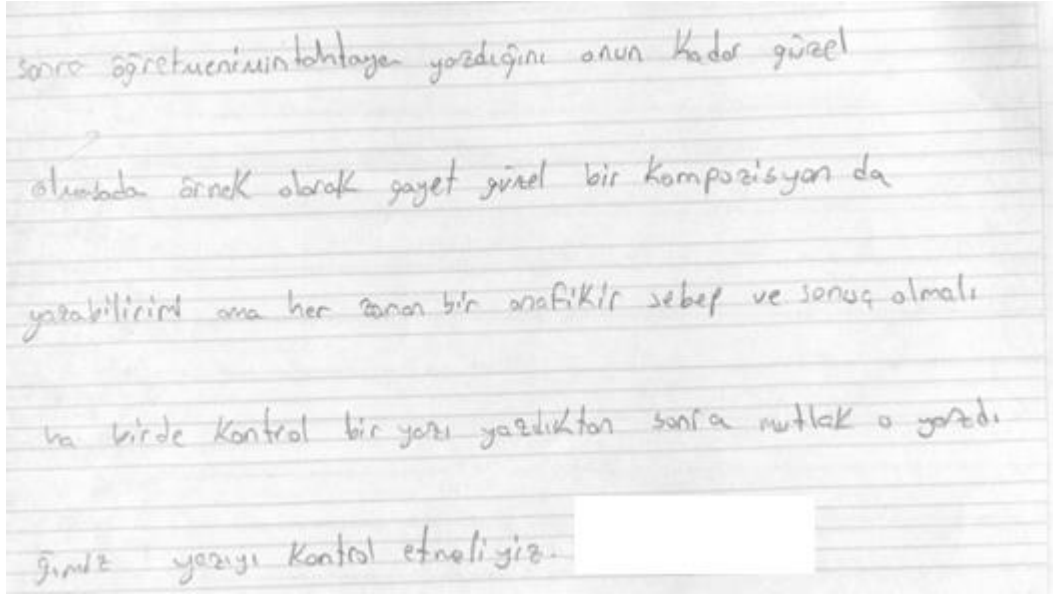 sonra öğretmenimin tahtaya yazdığını onun kadar güzel
olmasada örnek olarak gayet güzel bir kompozisyon da
yazabilirim ama her zaman bir anafikir sebep ve sonuç olmalı
ha birde kontrol bir yazı yazdıktan sonra mutlak o yazdı
ğımız yazıyı kontrol etmeliyiz.